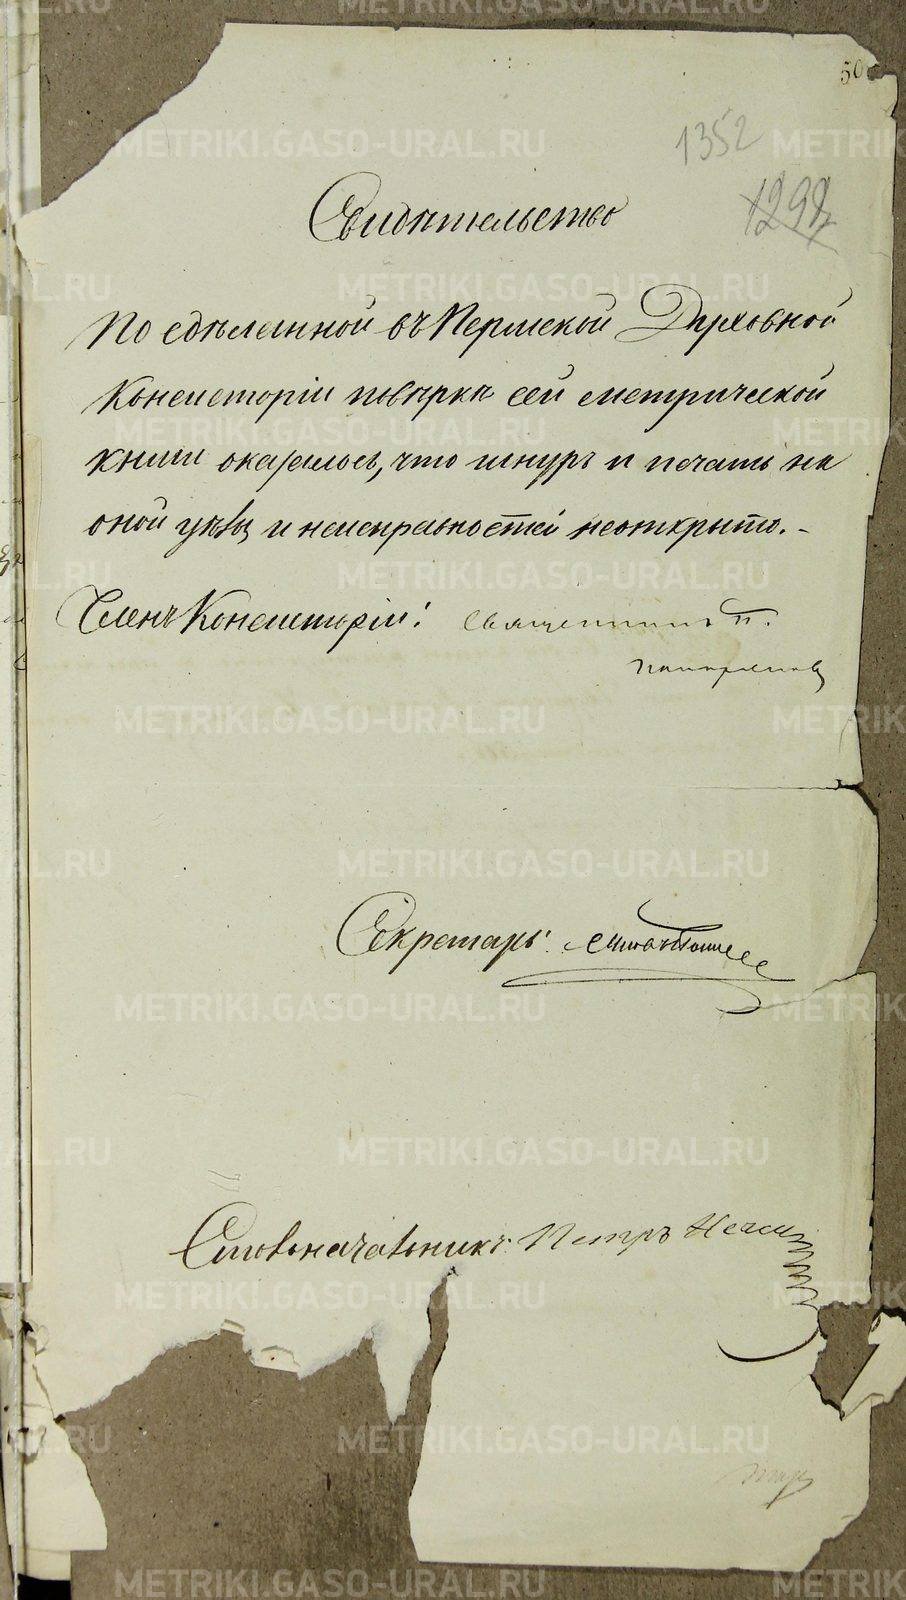 50
1352
1292
Свидѣтельство
По сдѣланной въ Пермской Духовной
Консисторіи повѣркѣ сей метрической
книги оказалось, что шнуръ и печать на
оной цѣлы и неисправностей неоткрыто. -
Членъ Консисторіи: Священникъ П.
Секретарь:
Столоначальникъ: Петръ
METRIKI.GASO-URAL.RU